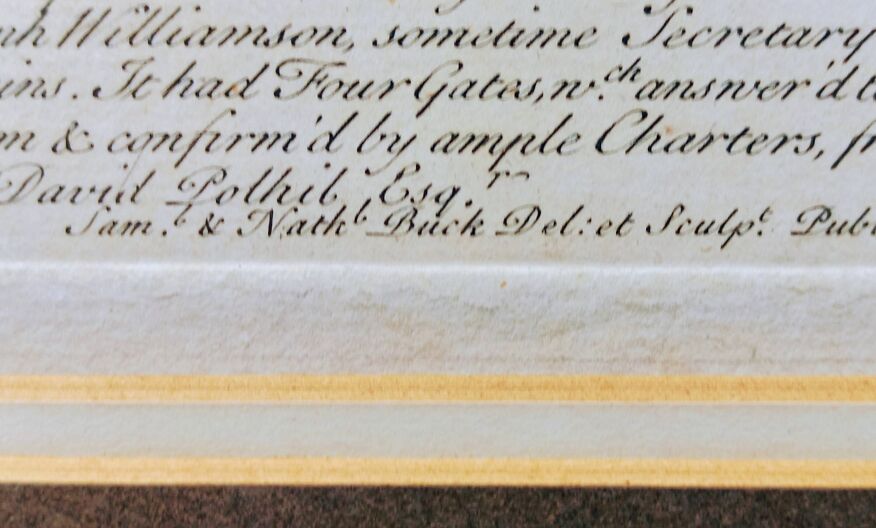 Williamson, sometime Secretary
It had Four Gates, w.ch answer'd
& confirm'd by ample Charters,
David Polhil, Esq.r
Sam.l & Nath.l Buck Del: et Sculp.t